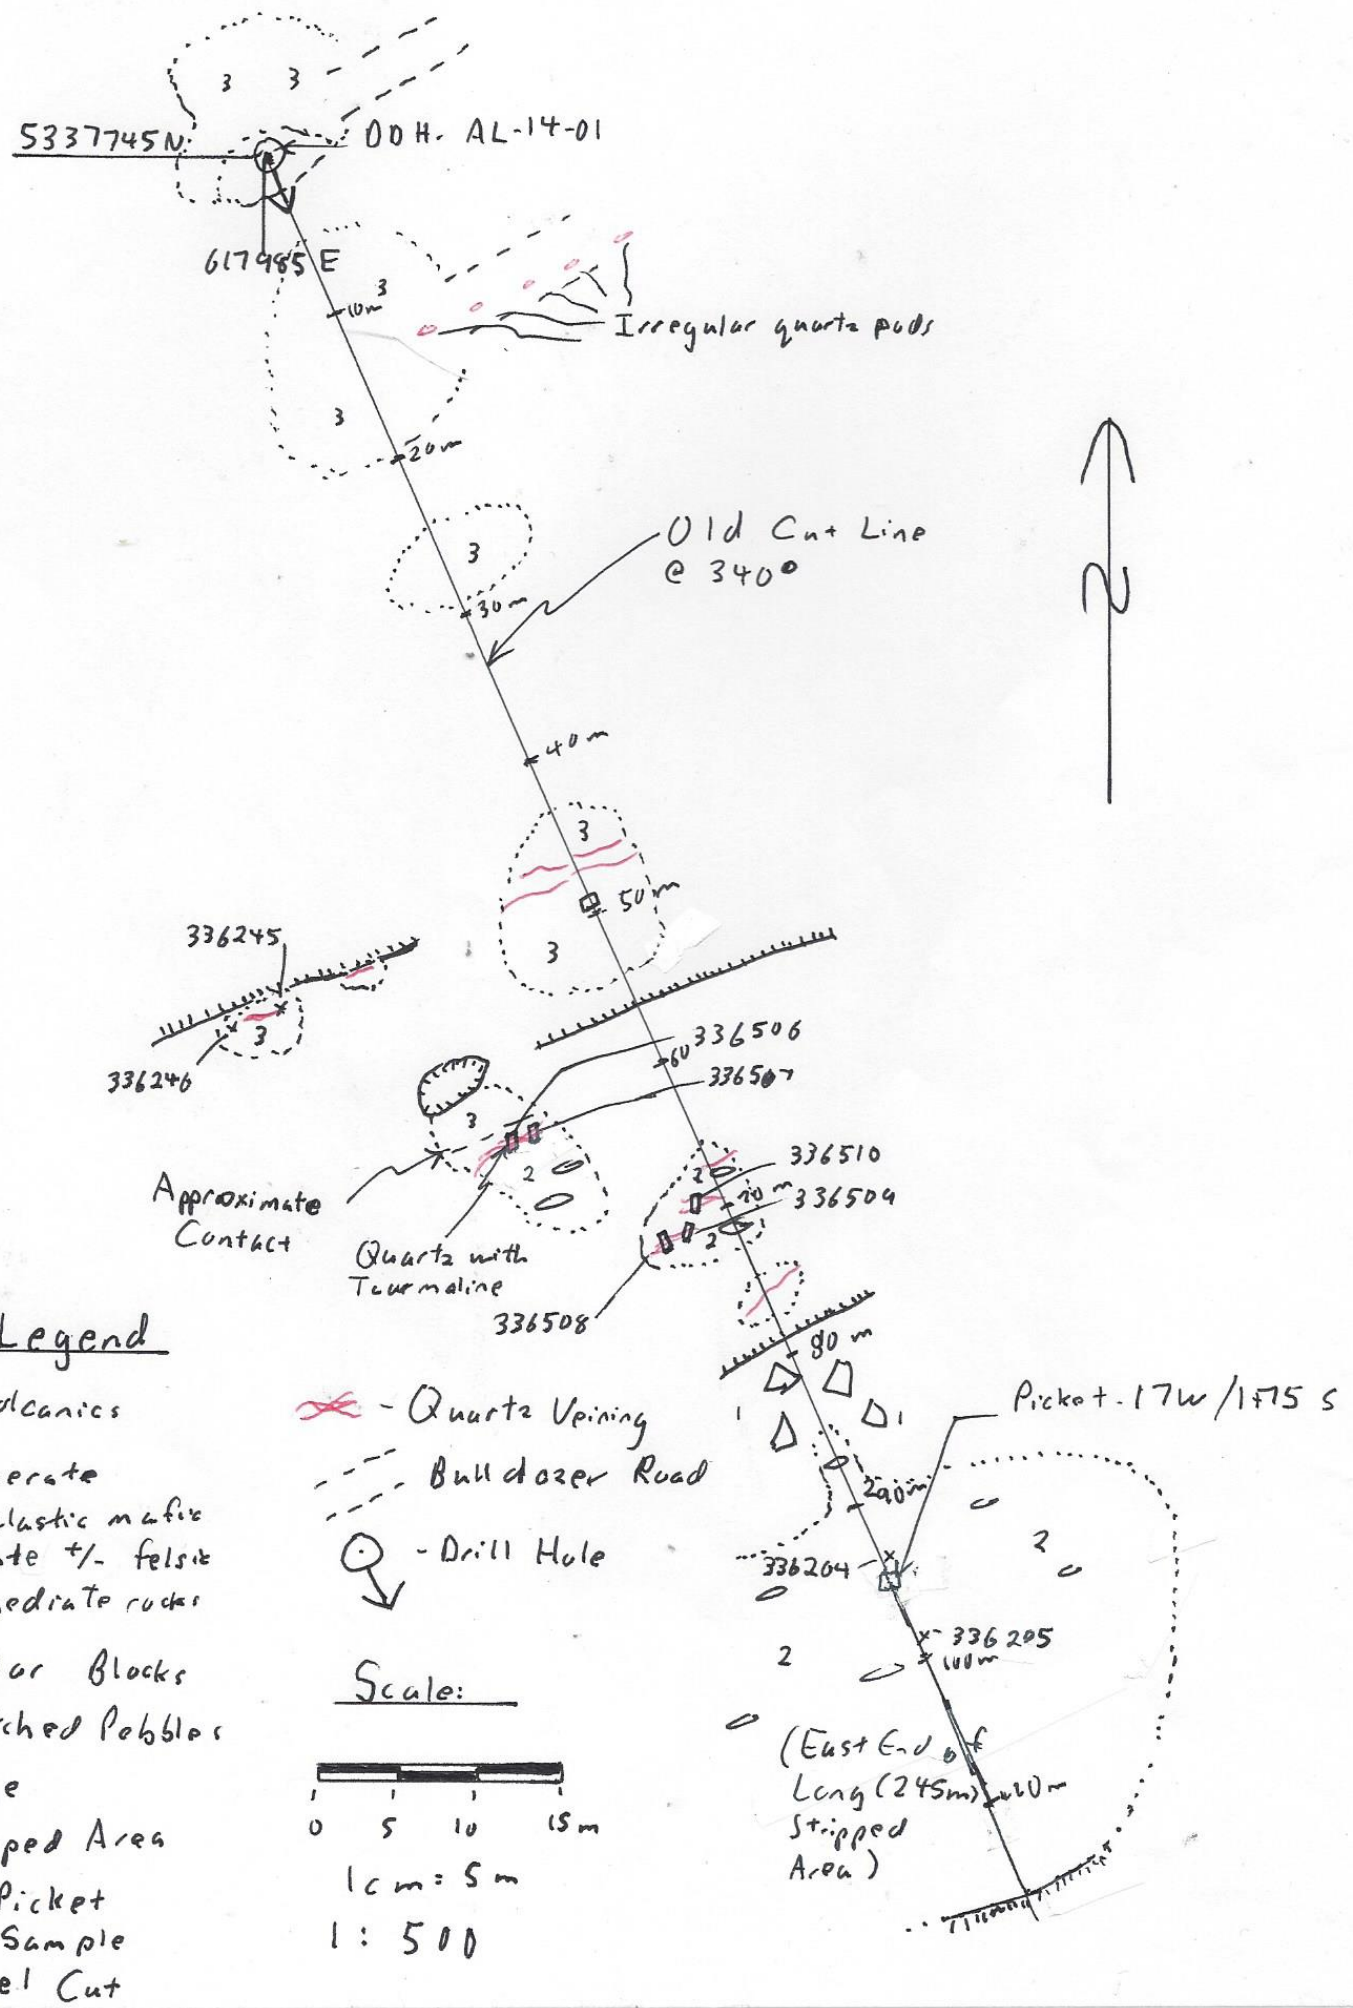 3 3
5337745N
DDH. AL-14-01
617985 E
3
10m
Irregular quartz pods
3
20m
Old Cut Line
@ 340°
3
30m
40m
3
50m
3
336245
3
336246
336506
60
336507
3
2
Approximate
Contact
Quartz with
Tourmaline
336510
2
70m
336509
2
336508
80m
1
1
Picket. 17W/1+75 S
2
90m
2
336204
336205
100m
2
(East End of
Long (245m)
Stripped
Area)
110m
N
Legend
olcanics
erate
lastic mafic
te +/- felsic
ediate rocks
ar Blocks
ched Pebbles
e
ped Area
Picket
Sample
el Cut
- Quartz Veining
Bulldozer Road
- Drill Hole
Scale:
0 5 10 15m
1cm = 5m
1: 500